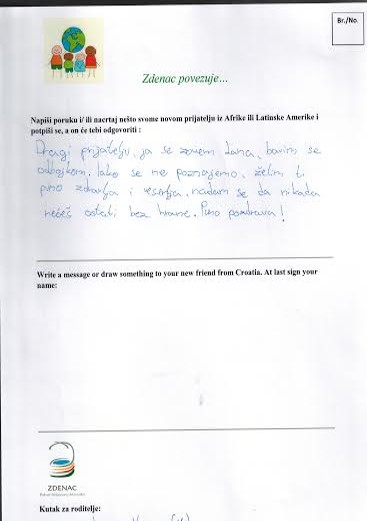 Br./No.
Zdenac povezuje…
Napiši poruku i/ ili nacrtaj nešto svome novom prijatelju iz Afrike ili Latinske Amerike i
potpiši se, a on će tebi odgovoriti :
Dragi prijatelju, ja se zovem Lana, bavim se
odbojkom. Iako se ne poznajemo, želim ti
puno zdravlja i veselja, nadam se da nikada
nećeš ostati bez hrane. Puno pozdrava!
Write a message or draw something to your new friend from Croatia. At last sign your
name:
ZDENAC
Kutak za roditelje: